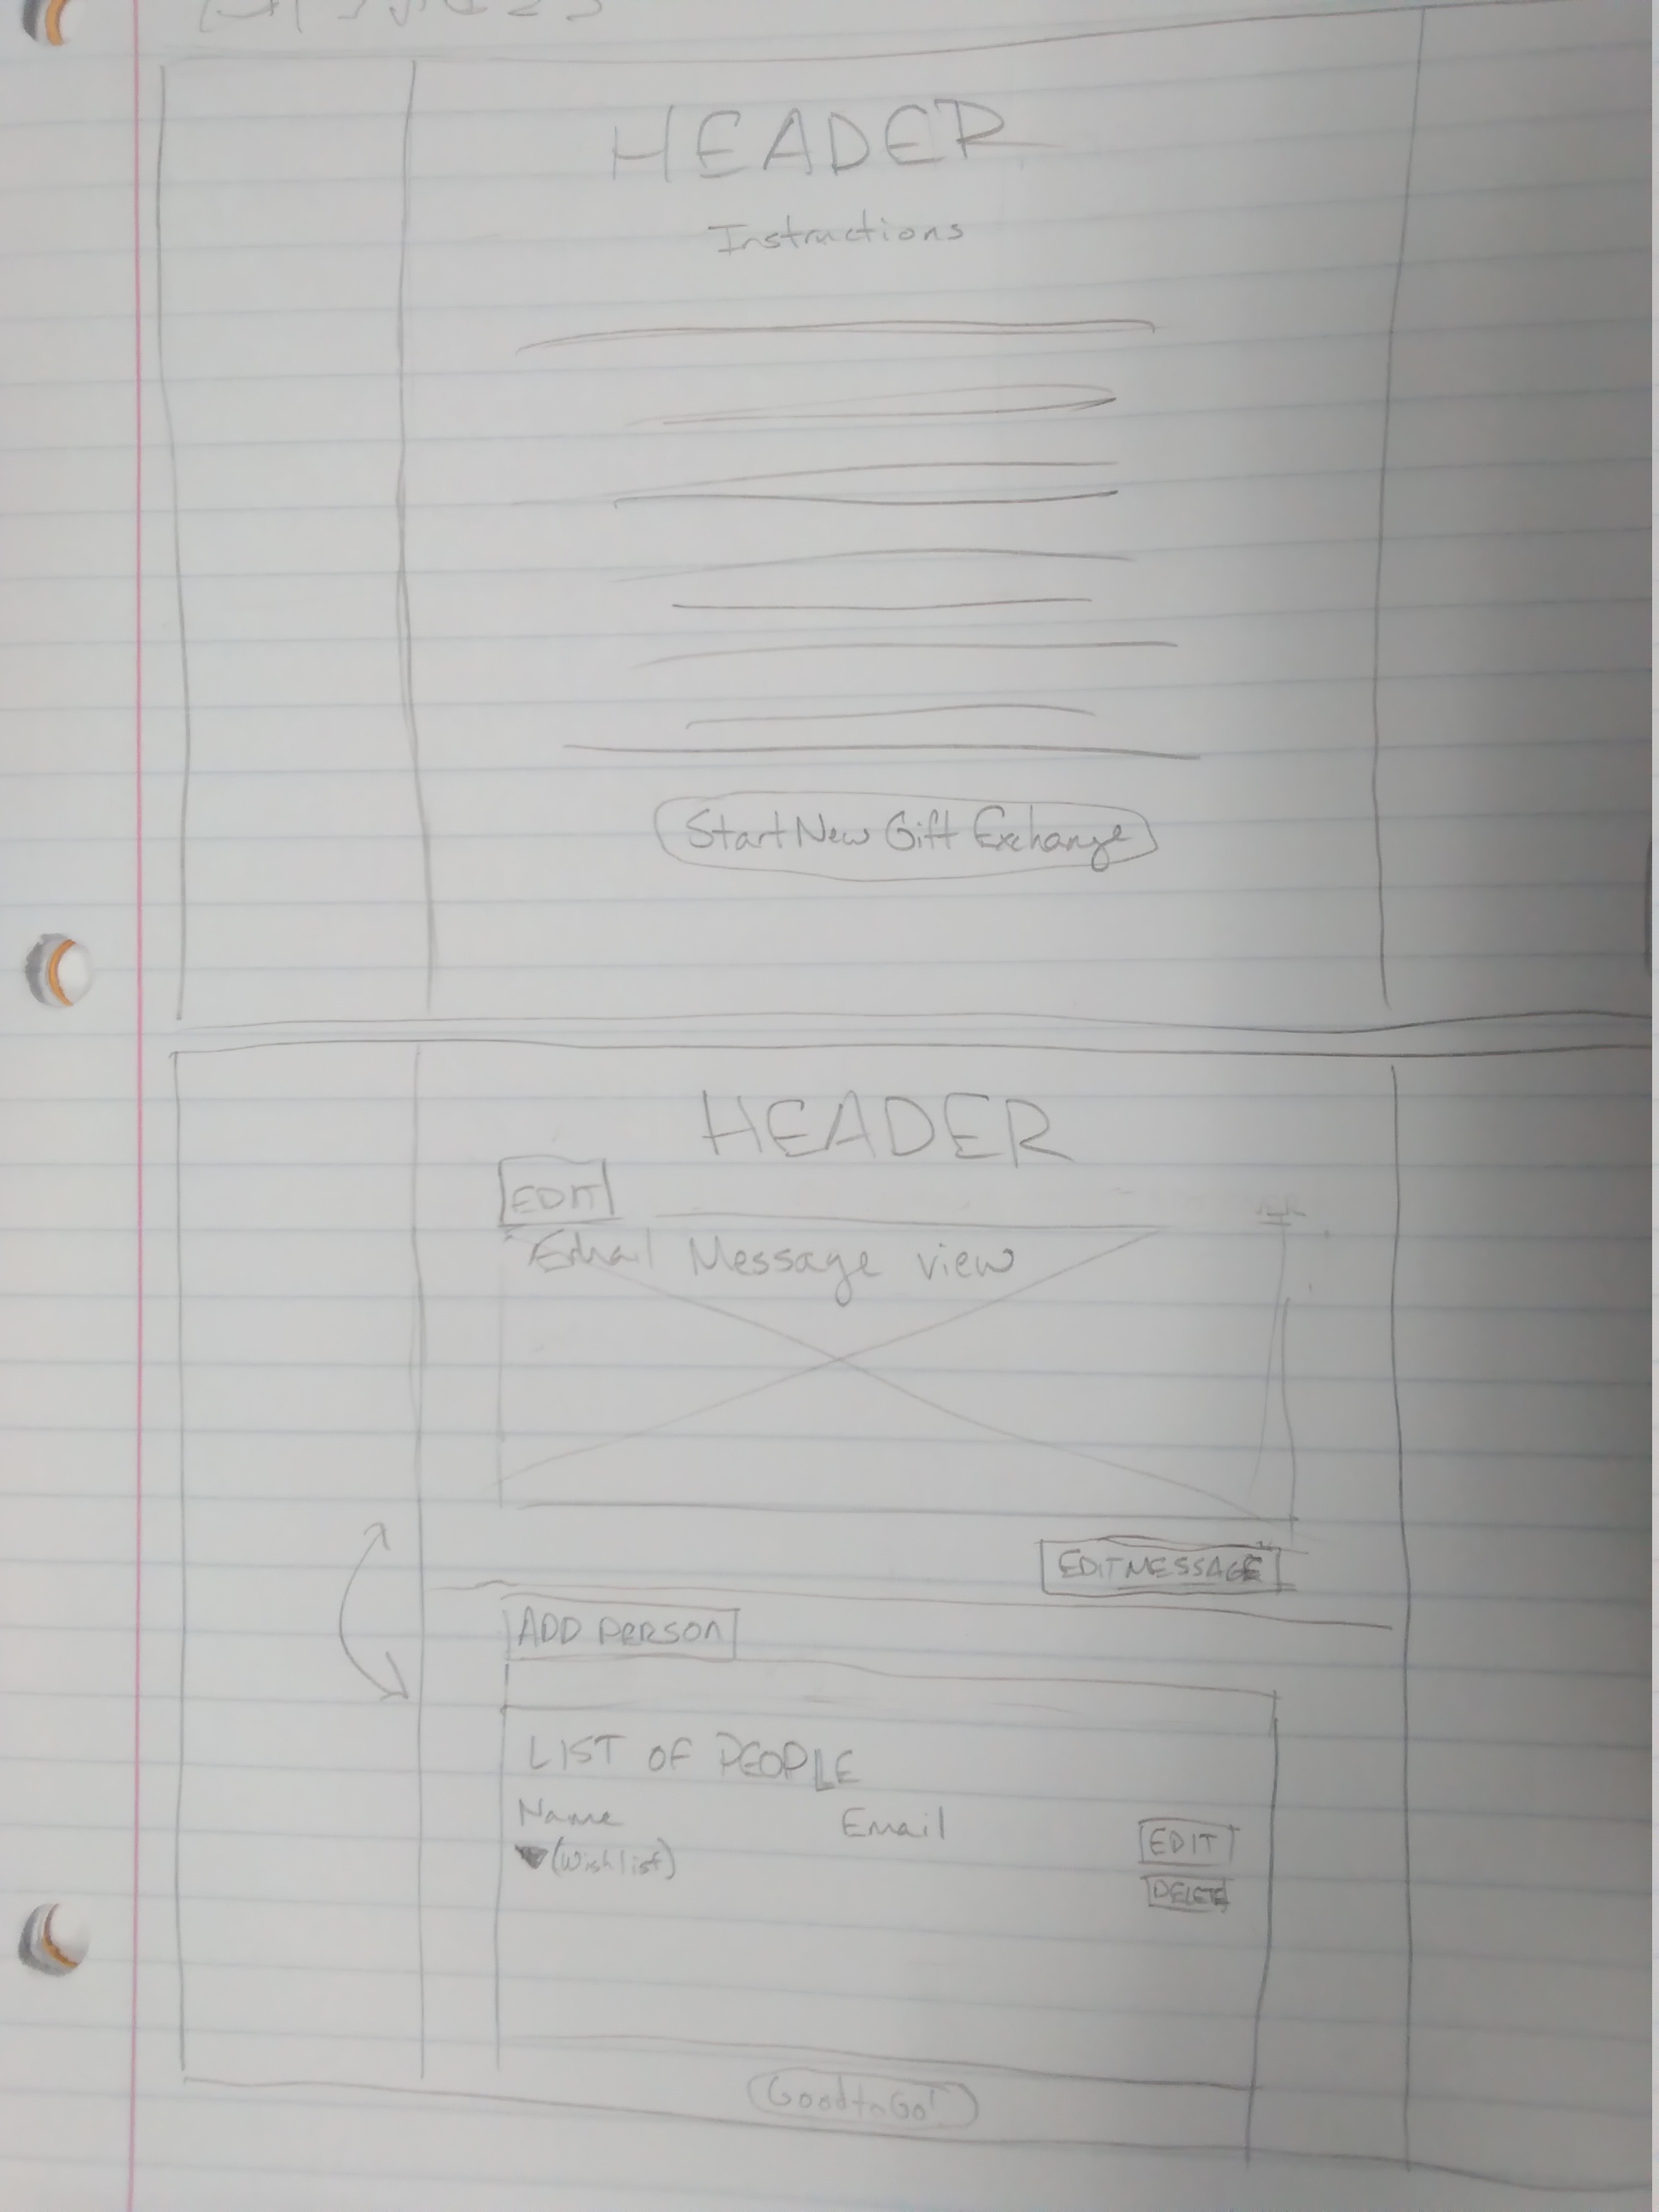 HEADER
Instructions
Start New Gift Exchange
HEADER
EDIT
Email Message view
EDIT MESSAGE
ADD PERSON
LIST OF PEOPLE
Name Email EDIT
(Wishlist) DELETE
Good to Go!